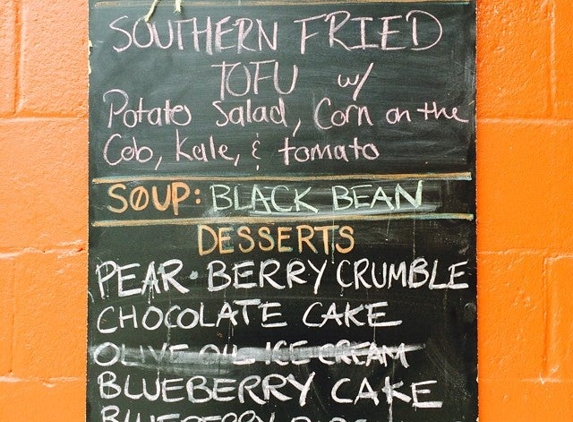 SOUTHERN FRIED
TOFU w/
Potato Salad, Corn on the
Cob, Kale, & tomato
SOUP: BLACK BEAN
DESSERTS
PEAR·BERRY CRUMBLE
CHOCOLATE CAKE
OLIVE OIL ICE CREAM
BLUEBERRY CAKE
BLUEBERRY